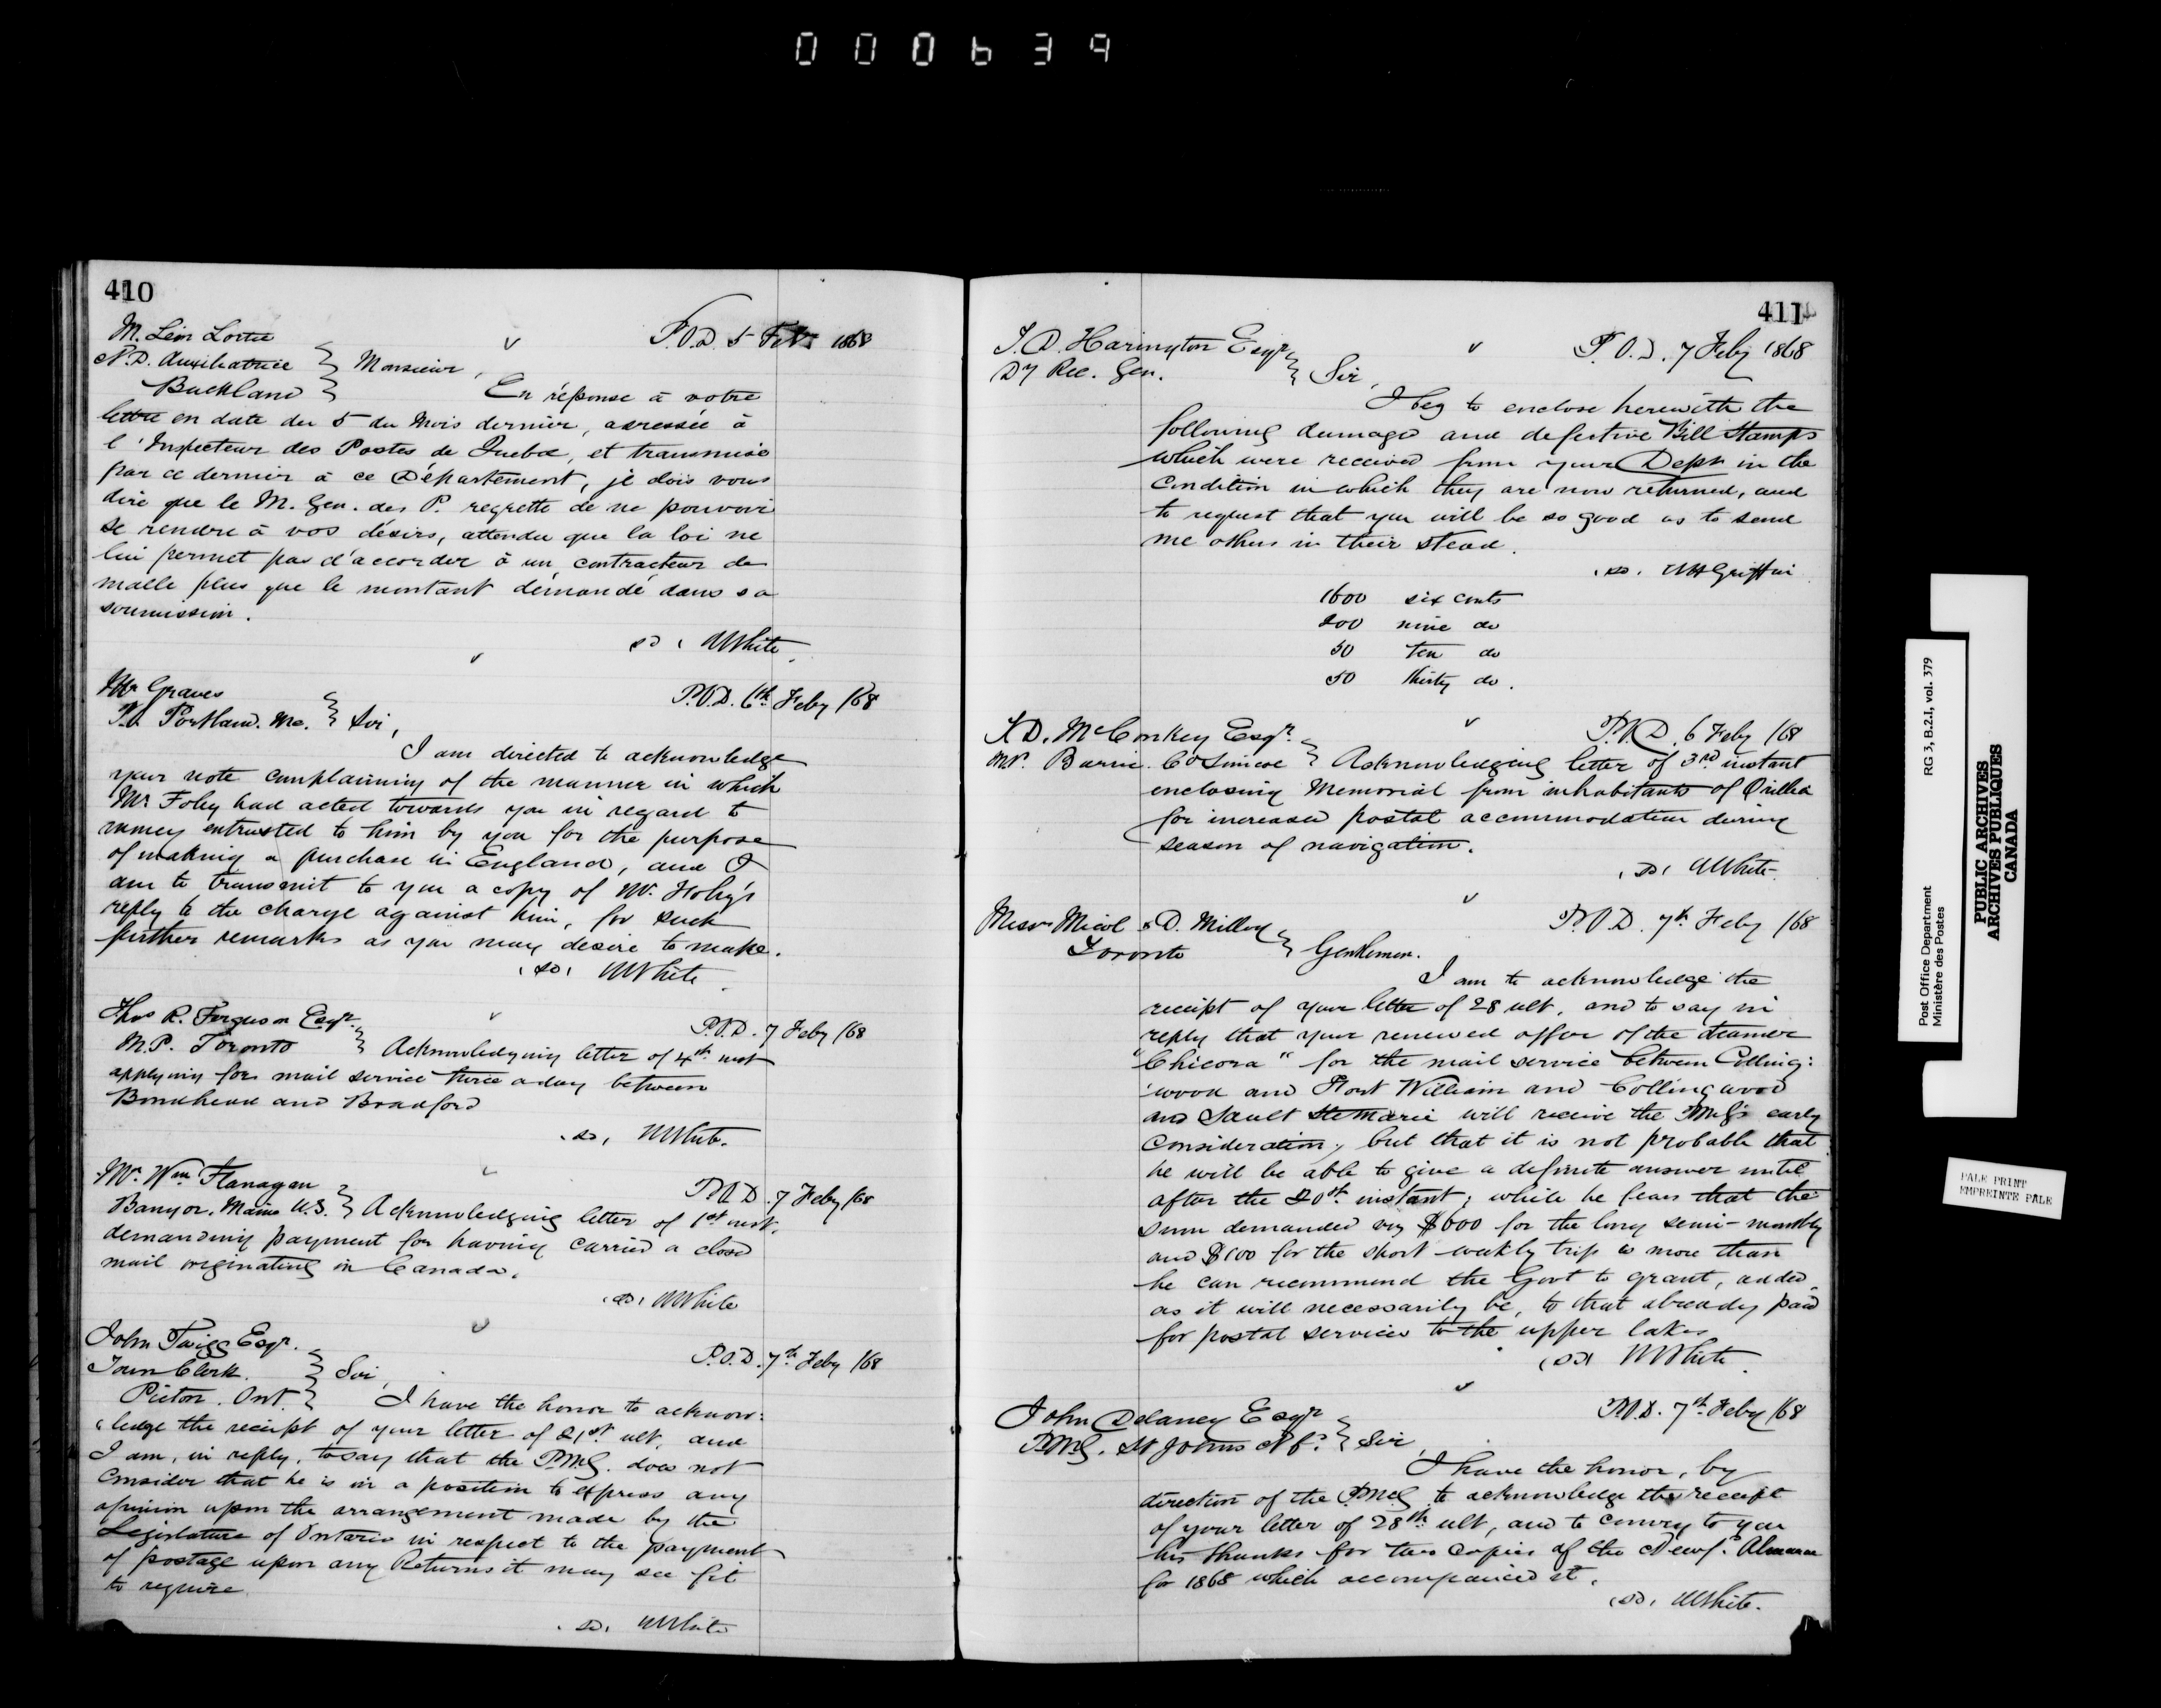 000639
410
M. Léon Lortie
N.D. Auxiliatrice } Monsieur,
Buckland
P.O.D. 5 Feb. 1868
En réponse à votre
lettre en date du 5 du Mois dernier, adressée à
l'Inspecteur des Postes de Quebec, et transmise
par ce dernier à ce Département, je dois vous
dire que le M. Gen. des P. regrette de ne pouvoir
se rendre à vos désirs, attendu que la loi ne
lui permet pas d'accorder à un contracteur de
malle plus que le montant démandé dans sa
soumission.
(sd) WWhite
Mr Graves
P.O. Portland. Me. } Sir,
P.O.D. 6th Feby /68
I am directed to acknowledge
your note complaining of the manner in which
Mr Foley had acted towards you in regard to
money entrusted to him by you for the purpose
of making a purchase in England, and I
am to transmit to you a copy of Mr. Foley's
reply to the charge against him, for such
further remarks as you may desire to make.
(sd) WWhite
Thos R. Ferguson Esqr.
P.O.D. 7 Feby /68
M.P. Toronto } Acknowledging letter of 4th inst
applying for mail service twice a day between
Bondhead and Bradford
(sd) WWhite.
Mr. Wm Flanagan
P.O.D. 7 Feby /68
Bangor. Maine U.S. } Acknowledging letter of 1st inst.
demanding payment for having carried a closed
mail originating in Canada.
(sd) WWhite
John Twigg Esqr.
Town Clerk. } Sir,
P.O.D. 7th Feby /68
Picton. Ont. I have the honor to acknow:
ledge the receipt of your letter of 21st ult, and
I am, in reply, to say that the P.M.G. does not
consider that he is in a position to express any
opinion upon the arrangement made by the
Legislature of Ontario in respect to the payment
of postage upon any Returns it may see fit
to require.
(sd) WWhite
411
T.D. Harington Esqr
Dy Rec. Gen. } Sir,
P.O.D. 7 Feby 1868
I beg to enclose herewith the
following damaged and defective Bill Stamps
which were received from your Dept in the
condition in which they are now returned, and
to request that you will be so good as to send
me others in their stead.
(sd) WHGriffin
1600 six cents
200 nine do
50 ten do
50 thirty do.
T.D. McConkey Esqr.
P.O.D. 6 Feby /68
M.P. Barrie. Co Simcoe } Acknowledging letter of 3rd instant
enclosing Memorial from inhabitants of Orillia
for increased postal accommodation during
season of navigation.
(sd) WWhite
Messrs Micol & D. Milloy
Toronto } Gentlemen.
P.O.D. 7th Feby /68
I am to acknowledge the
receipt of your letter of 28 ult, and to say in
reply that your renewed offer of the steamer
"Chicora" for the mail service between Colling:
wood and Fort William and Collingwood
and Sault Ste Marie will receive the PMG's early
consideration, but that it is not probable that
he will be able to give a definite answer until
after the 20th instant; while he fears that the
sum demanded viz $600 for the long semi-monthly
and $100 for the short weekly trip is more than
he can recommend the Govt to grant, added
as it will necessarily be, to that already paid
for postal services to the upper lakes
(sd) WWhite
John Delaney Esqr
P.M.G. St Johns Nfd } Sir,
P.O.D. 7th Feby /68
I have the honor, by
direction of the PMG to acknowledge the receipt
of your letter of 28th ult, and to convey to you
his thanks for two copies of the Newfd Almanac
for 1868 which accompanied it.
(sd) WWhite.
Post Office Department RG 3, B.2.I, vol. 379
Ministère des Postes
PUBLIC ARCHIVES
ARCHIVES PUBLIQUES
CANADA
PALE PRINT
EMPREINTE PALE